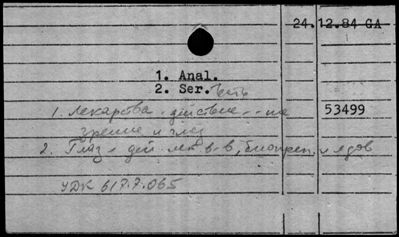 24.12.84 GA
1. Anal.
2. Ser. есть
1. Лекарства - действие - - на 53499
зрение и глаз
2. Глаз - дей. лек. в-в, биопреп. и ядов
УДК 617.7.065